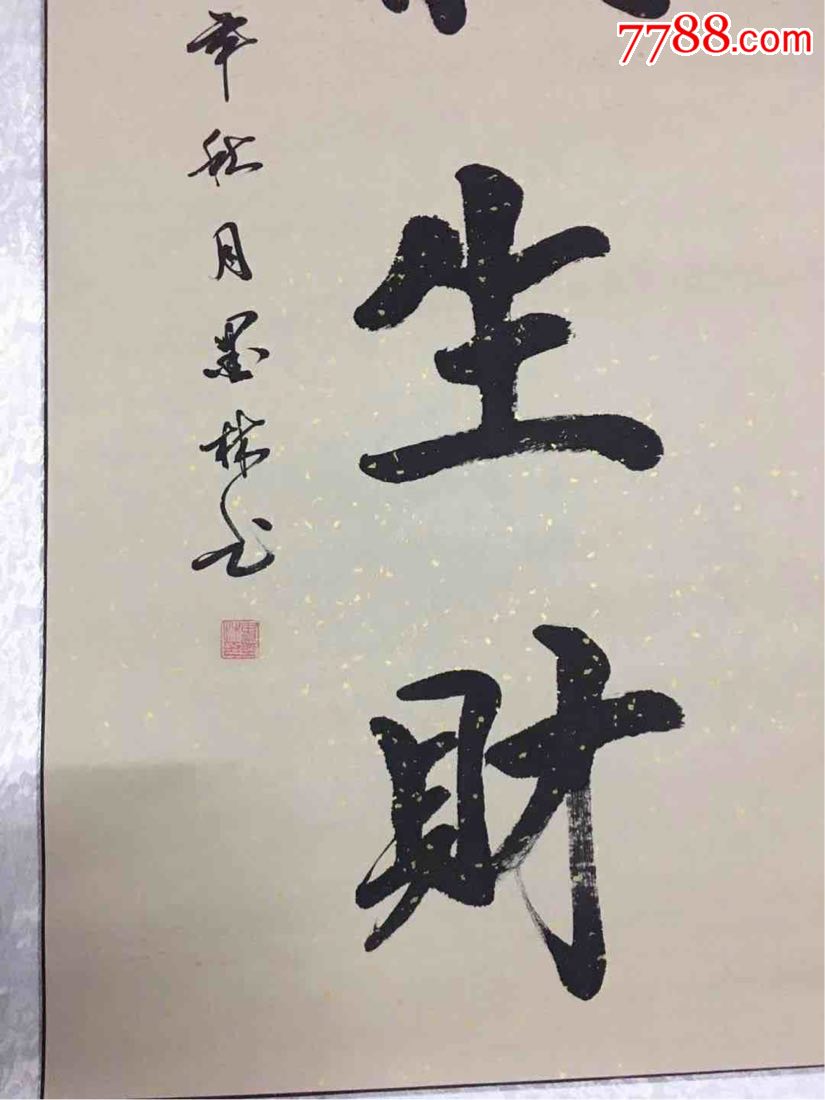 7788.com
生
财
年秋月墨林书